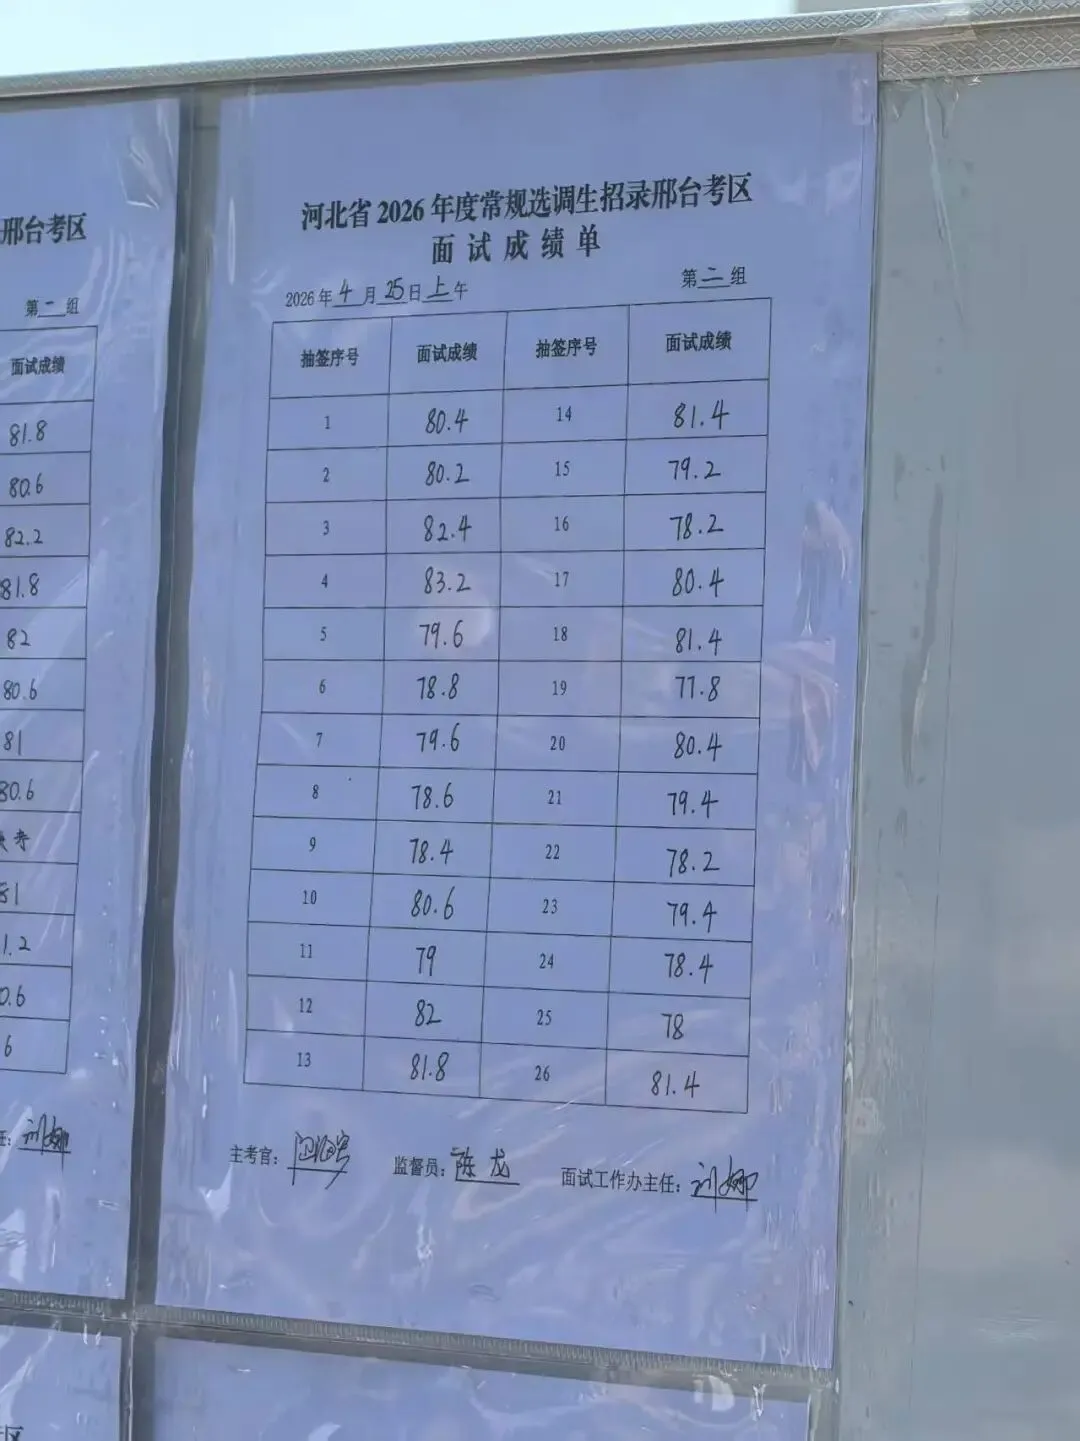 邢台考区
第一组
面试成绩
81.8
80.6
82.2
81.8
82
80.6
81
80.6
81
1.2
0.6
6
刘娜
河北省2026年度常规选调生招录邢台考区
面试成绩单
2026年4月25日上午 第二组
抽签序号 面试成绩 抽签序号 面试成绩
1 80.4 14 81.4
2 80.2 15 79.2
3 82.4 16 78.2
4 83.2 17 80.4
5 79.6 18 81.4
6 78.8 19 77.8
7 79.6 20 80.4
8 78.6 21 79.4
9 78.4 22 78.2
10 80.6 23 79.4
11 79 24 78.4
12 82 25 78
13 81.8 26 81.4
主考官: 监督员:陈龙 面试工作办主任:刘娜
区